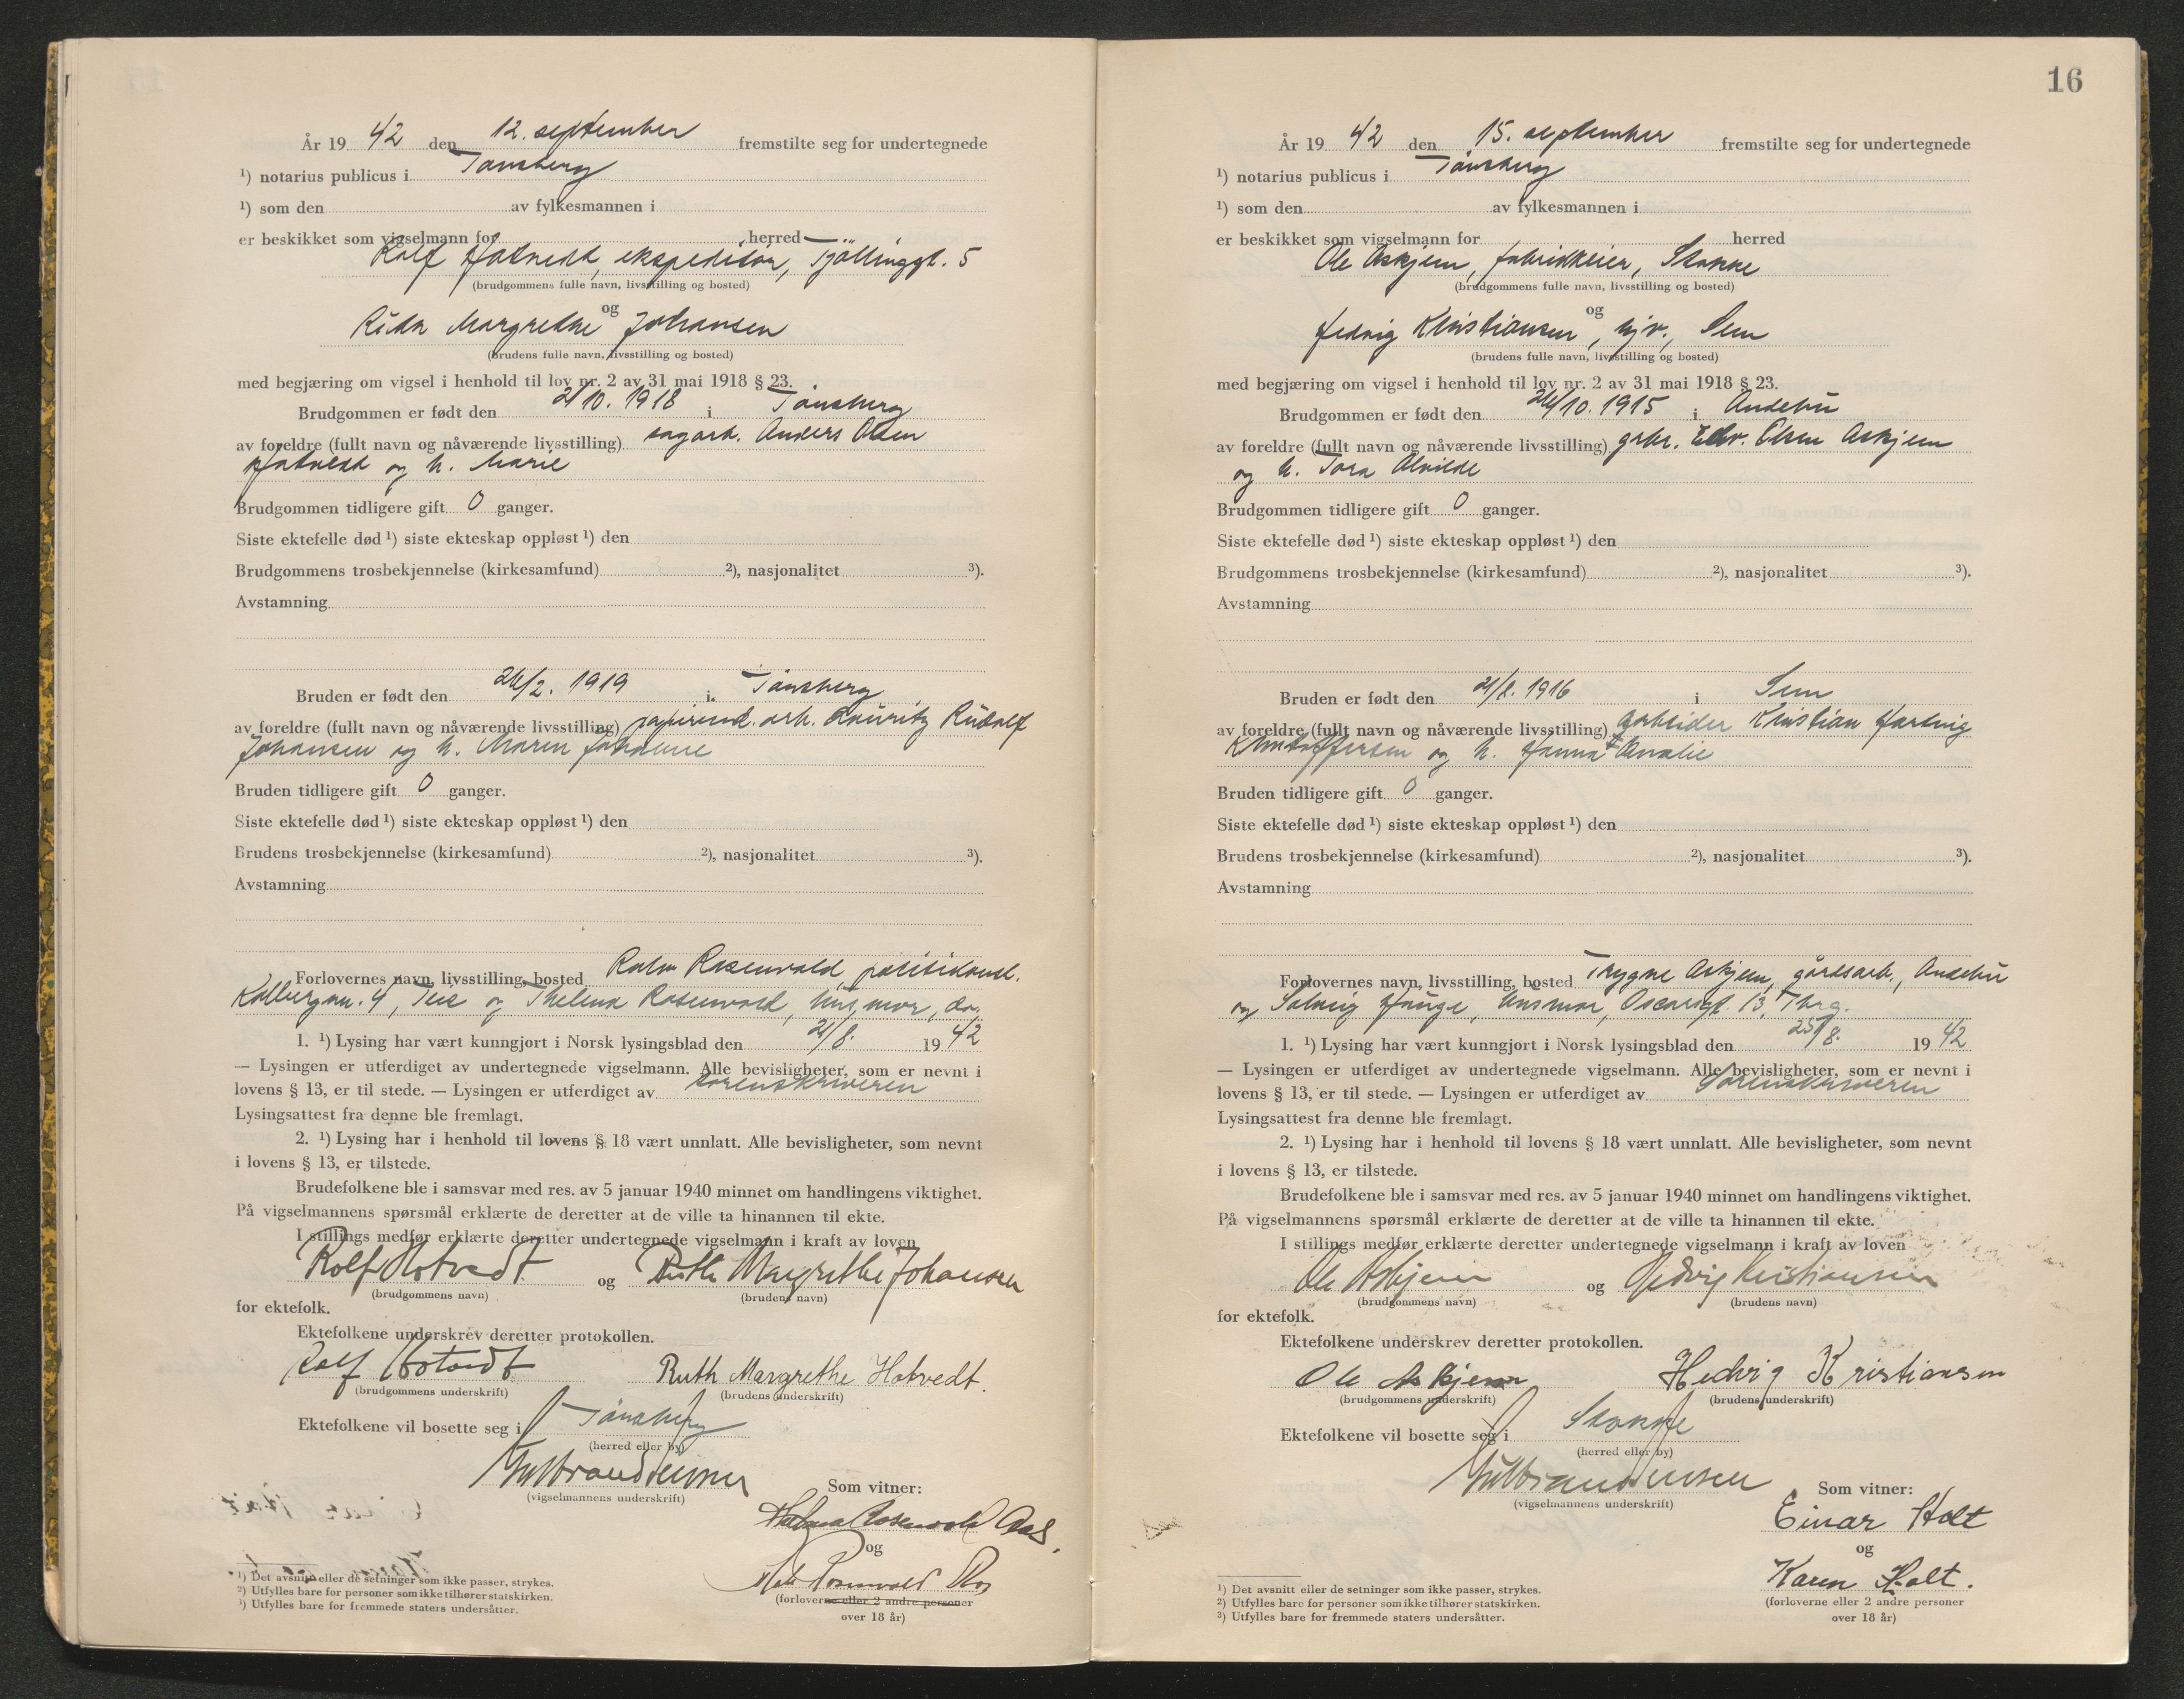 År 19 42 den 12. september fremstilte seg for undertegnede
¹) notarius publicus i Tønsberg
¹) som den av fylkesmannen i
er beskikket som vigselmann for herred
Rolf Hotvedt, ekspeditør, Tjøllinggt. 5
(brudgommens fulle navn, livsstilling og bosted)
og
Ruth Margrethe Johansen
(brudens fulle navn, livsstilling og bosted)
med begjæring om vigsel i henhold til lov nr. 2 av 31 mai 1918 § 23.
Brudgommen er født den 2/10. 1918 i Tønsberg
av foreldre (fullt navn og nåværende livsstilling) sagarb. Anders Olsen
Hotvedt og h. Marie
Brudgommen tidligere gift 0 ganger.
Siste ektefelle død ¹) siste ekteskap oppløst ¹) den
Brudgommens trosbekjennelse (kirkesamfund) ²), nasjonalitet ³).
Avstamning
Bruden er født den 26/2. 1919 i Tønsberg
av foreldre (fullt navn og nåværende livsstilling) papirind. arb. Lauritz Rudolf
Johansen og h. Maren
Bruden tidligere gift 0 ganger.
Siste ektefelle død ¹) siste ekteskap oppløst ¹) den
Brudens trosbekjennelse (kirkesamfund) ²), nasjonalitet ³).
Avstamning
Forlovernes navn, livsstilling, bosted Rosenvold, politikonst.
4, og Thelma Rosenvold, husmor, do.
1. ¹) Lysing har vært kunngjort i Norsk lysingsblad den 21/8. 19 42
— Lysingen er utferdiget av undertegnede vigselmann. Alle bevisligheter, som er nevnt i
lovens § 13, er til stede. — Lysingen er utferdiget av sorenskriveren
Lysingsattest fra denne ble fremlagt.
2. ¹) Lysing har i henhold til lovens § 18 vært unnlatt. Alle bevisligheter, som nevnt
i lovens § 13, er tilstede.
Brudefolkene ble i samsvar med res. av 5 januar 1940 minnet om handlingens viktighet.
På vigselmannens spørsmål erklærte de deretter at de ville ta hinannen til ekte.
I stillings medfør erklærte deretter undertegnede vigselmann i kraft av loven
Rolf Hotvedt og Ruth Margrethe Johansen
(brudgommens navn) (brudens navn)
for ektefolk.
Ektefolkene underskrev deretter protokollen.
Rolf Hotvedt Ruth Margrethe Hotvedt.
(brudgommens underskrift) (brudens underskrift)
Ektefolkene vil bosette seg i Tønsberg
(herred eller by)
(vigselmannens underskrift)
Som vitner:
Rosenvold
og
Rosenvold
(forloverne eller 2 andre personer
over 18 år)
¹) Det avsnitt eller de setninger som ikke passer, strykes.
²) Utfylles bare for personer som ikke tilhører statskirken.
³) Utfylles bare for fremmede staters undersåtter.
16
År 19 42 den 15. september fremstilte seg for undertegnede
¹) notarius publicus i Tønsberg
¹) som den av fylkesmannen i
er beskikket som vigselmann for herred
Ole Askjem, fabrikkeier, Stokke
(brudgommens fulle navn, livsstilling og bosted)
og
Hedvig Kristiansen, hjv., Sem
(brudens fulle navn, livsstilling og bosted)
med begjæring om vigsel i henhold til lov nr. 2 av 31 mai 1918 § 23.
Brudgommen er født den 24/10. 1915 i Andebu
av foreldre (fullt navn og nåværende livsstilling) gårbr. Edv. Olsen Askjem
og h. Tora Alvilde
Brudgommen tidligere gift 0 ganger.
Siste ektefelle død ¹) siste ekteskap oppløst ¹) den
Brudgommens trosbekjennelse (kirkesamfund) ²), nasjonalitet ³).
Avstamning
Bruden er født den 21/8. 1916 i Sem
av foreldre (fullt navn og nåværende livsstilling) Kristian Hartvig
Kristoffersen og h. Hanna Amalie
Bruden tidligere gift 0 ganger.
Siste ektefelle død ¹) siste ekteskap oppløst ¹) den
Brudens trosbekjennelse (kirkesamfund) ²), nasjonalitet ³).
Avstamning
Forlovernes navn, livsstilling, bosted Trygve Askjem, gårdsarb., Andebu
og Solveig Hauge, husmor, Oscarsgt. 13, Tbrg.
1. ¹) Lysing har vært kunngjort i Norsk lysingsblad den 25/8. 19 42
— Lysingen er utferdiget av undertegnede vigselmann. Alle bevisligheter, som er nevnt i
lovens § 13, er til stede. — Lysingen er utferdiget av Sorenskriveren
Lysingsattest fra denne ble fremlagt.
2. ¹) Lysing har i henhold til lovens § 18 vært unnlatt. Alle bevisligheter, som nevnt
i lovens § 13, er tilstede.
Brudefolkene ble i samsvar med res. av 5 januar 1940 minnet om handlingens viktighet.
På vigselmannens spørsmål erklærte de deretter at de ville ta hinannen til ekte.
I stillings medfør erklærte deretter undertegnede vigselmann i kraft av loven
Ole Askjem og Hedvig Kristiansen
(brudgommens navn) (brudens navn)
for ektefolk.
Ektefolkene underskrev deretter protokollen.
Ole Askjem Hedvig Kristiansen
(brudgommens underskrift) (brudens underskrift)
Ektefolkene vil bosette seg i Stokke
(herred eller by)
(vigselmannens underskrift)
Som vitner:
Einar Holt
og
Karen Holt.
(forloverne eller 2 andre personer
over 18 år)
¹) Det avsnitt eller de setninger som ikke passer, strykes.
²) Utfylles bare for personer som ikke tilhører statskirken.
³) Utfylles bare for fremmede staters undersåtter.